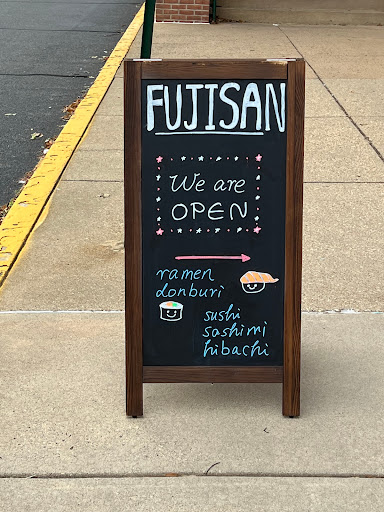 FUJISAN
We are
OPEN
ramen
donburi
sushi
sashimi
hibachi